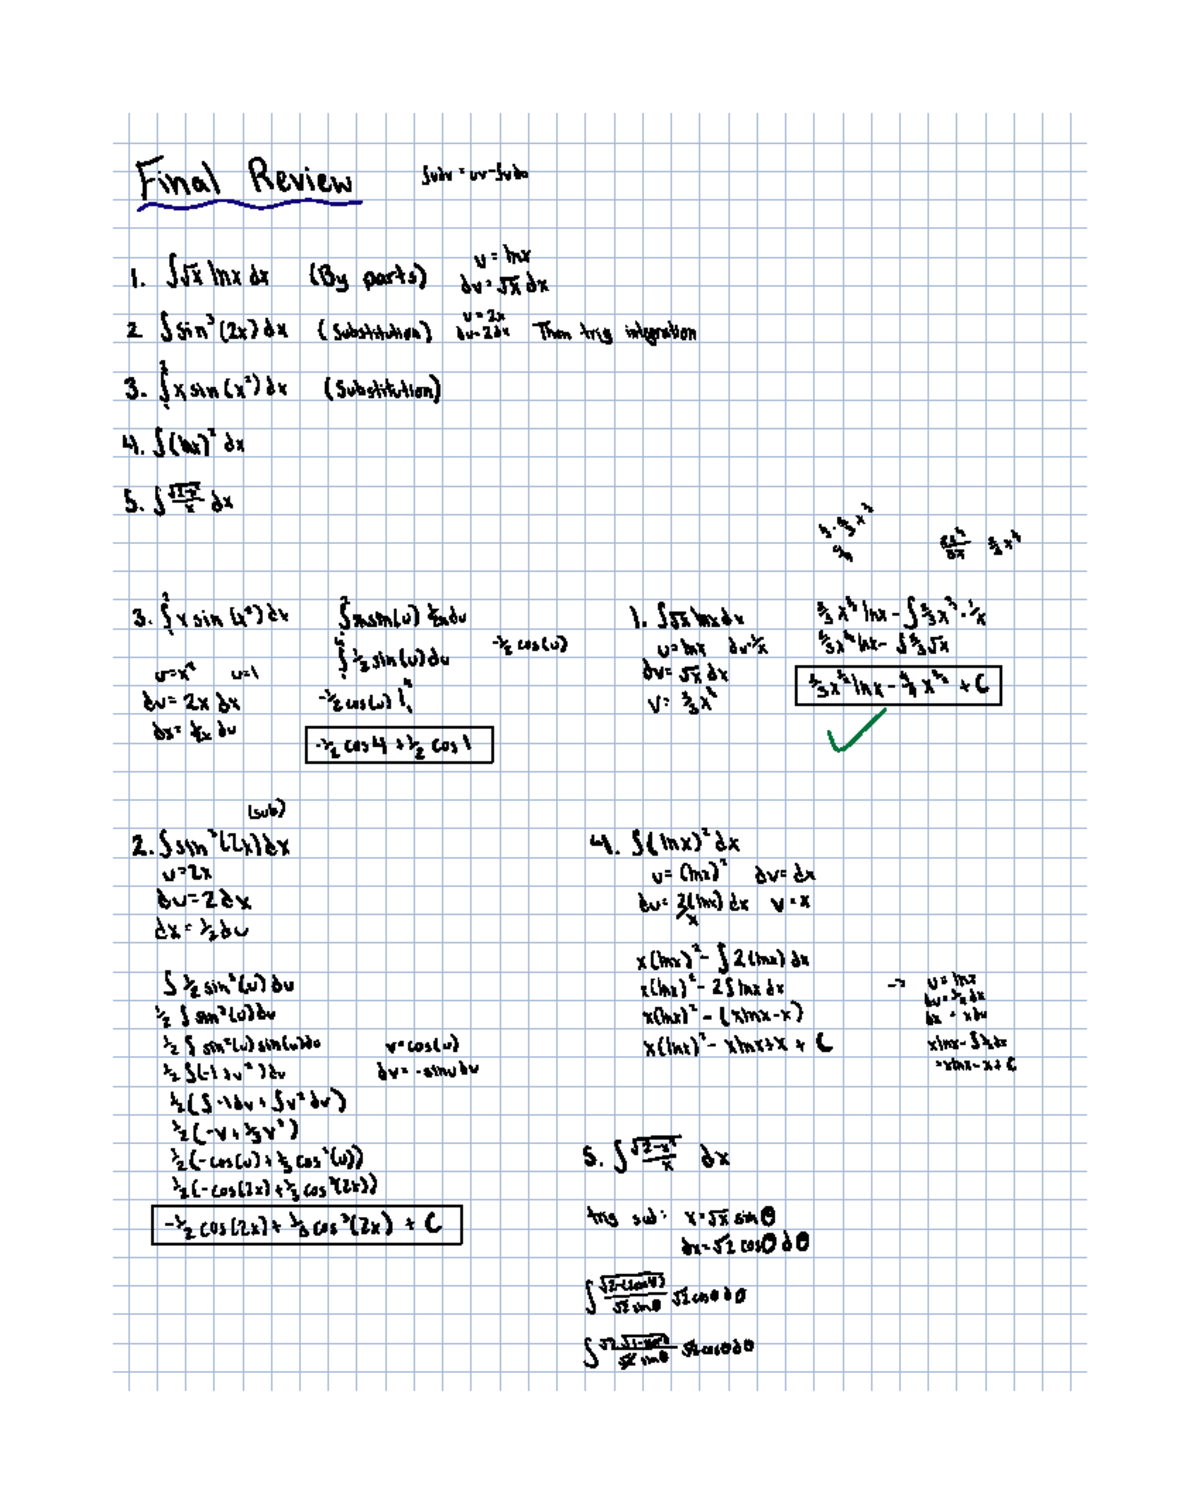 Final Review ∫udv = uv-∫vdu
1. ∫√x lnx dx (By parts) u = lnx
dv = √x dx
2 ∫sin³(2x)dx (Substitution) u = 2x Then trig integration
du = 2dx
3. ∫x sin(x²)dx (Substitution)
4. ∫(lnx)² dx
5. ∫ √2-x² / x dx
3. ∫x sin(x²)dx
u=x² u=1
du = 2x dx
dx = ½x du
∫½ sin(u)du -½ cos(u)
-½cos(u)|₁⁴
-½ cos4 + ½ cos1
1. ∫√x lnx dx
u=lnx du=⅟x
dv = √x dx
v = ⅔x
⅔x lnx - ∫⅔x · ⅟x
⅔x lnx - ∫⅔√x
⅔x lnx - 4/9 x + C
(sub)
2. ∫sin³(2x)dx
u=2x
du=2dx
dx = ½du
∫½ sin³(u)du
½∫sin³(u)du
½∫sin²(u)sin(u)du v=cos(u)
½∫(-1+v²)dv dv = -sinu du
½(∫-1dv + ∫v²dv)
½(-v + ⅓v³)
½(-cos(u) + ⅓cos³(u))
½(-cos(2x) + ⅓cos³(2x))
-½cos(2x) + ⅙cos³(2x) + C
4. ∫(lnx)²dx
u = (lnx)² dv = dx
du = 2(lnx)/x dx v = x
x(lnx)² - ∫2(lnx)dx
x(lnx)² - 2∫lnxdx
x(lnx)² - (xlnx-x)
x(lnx)² - xlnx+x + C
-> u = lnx
du = ⅟x dx
dx = xdu
xlnx-x+C
5. ∫ √2-x² / x dx
trig sub: x=√x sinθ
dx=√2 cosθdθ